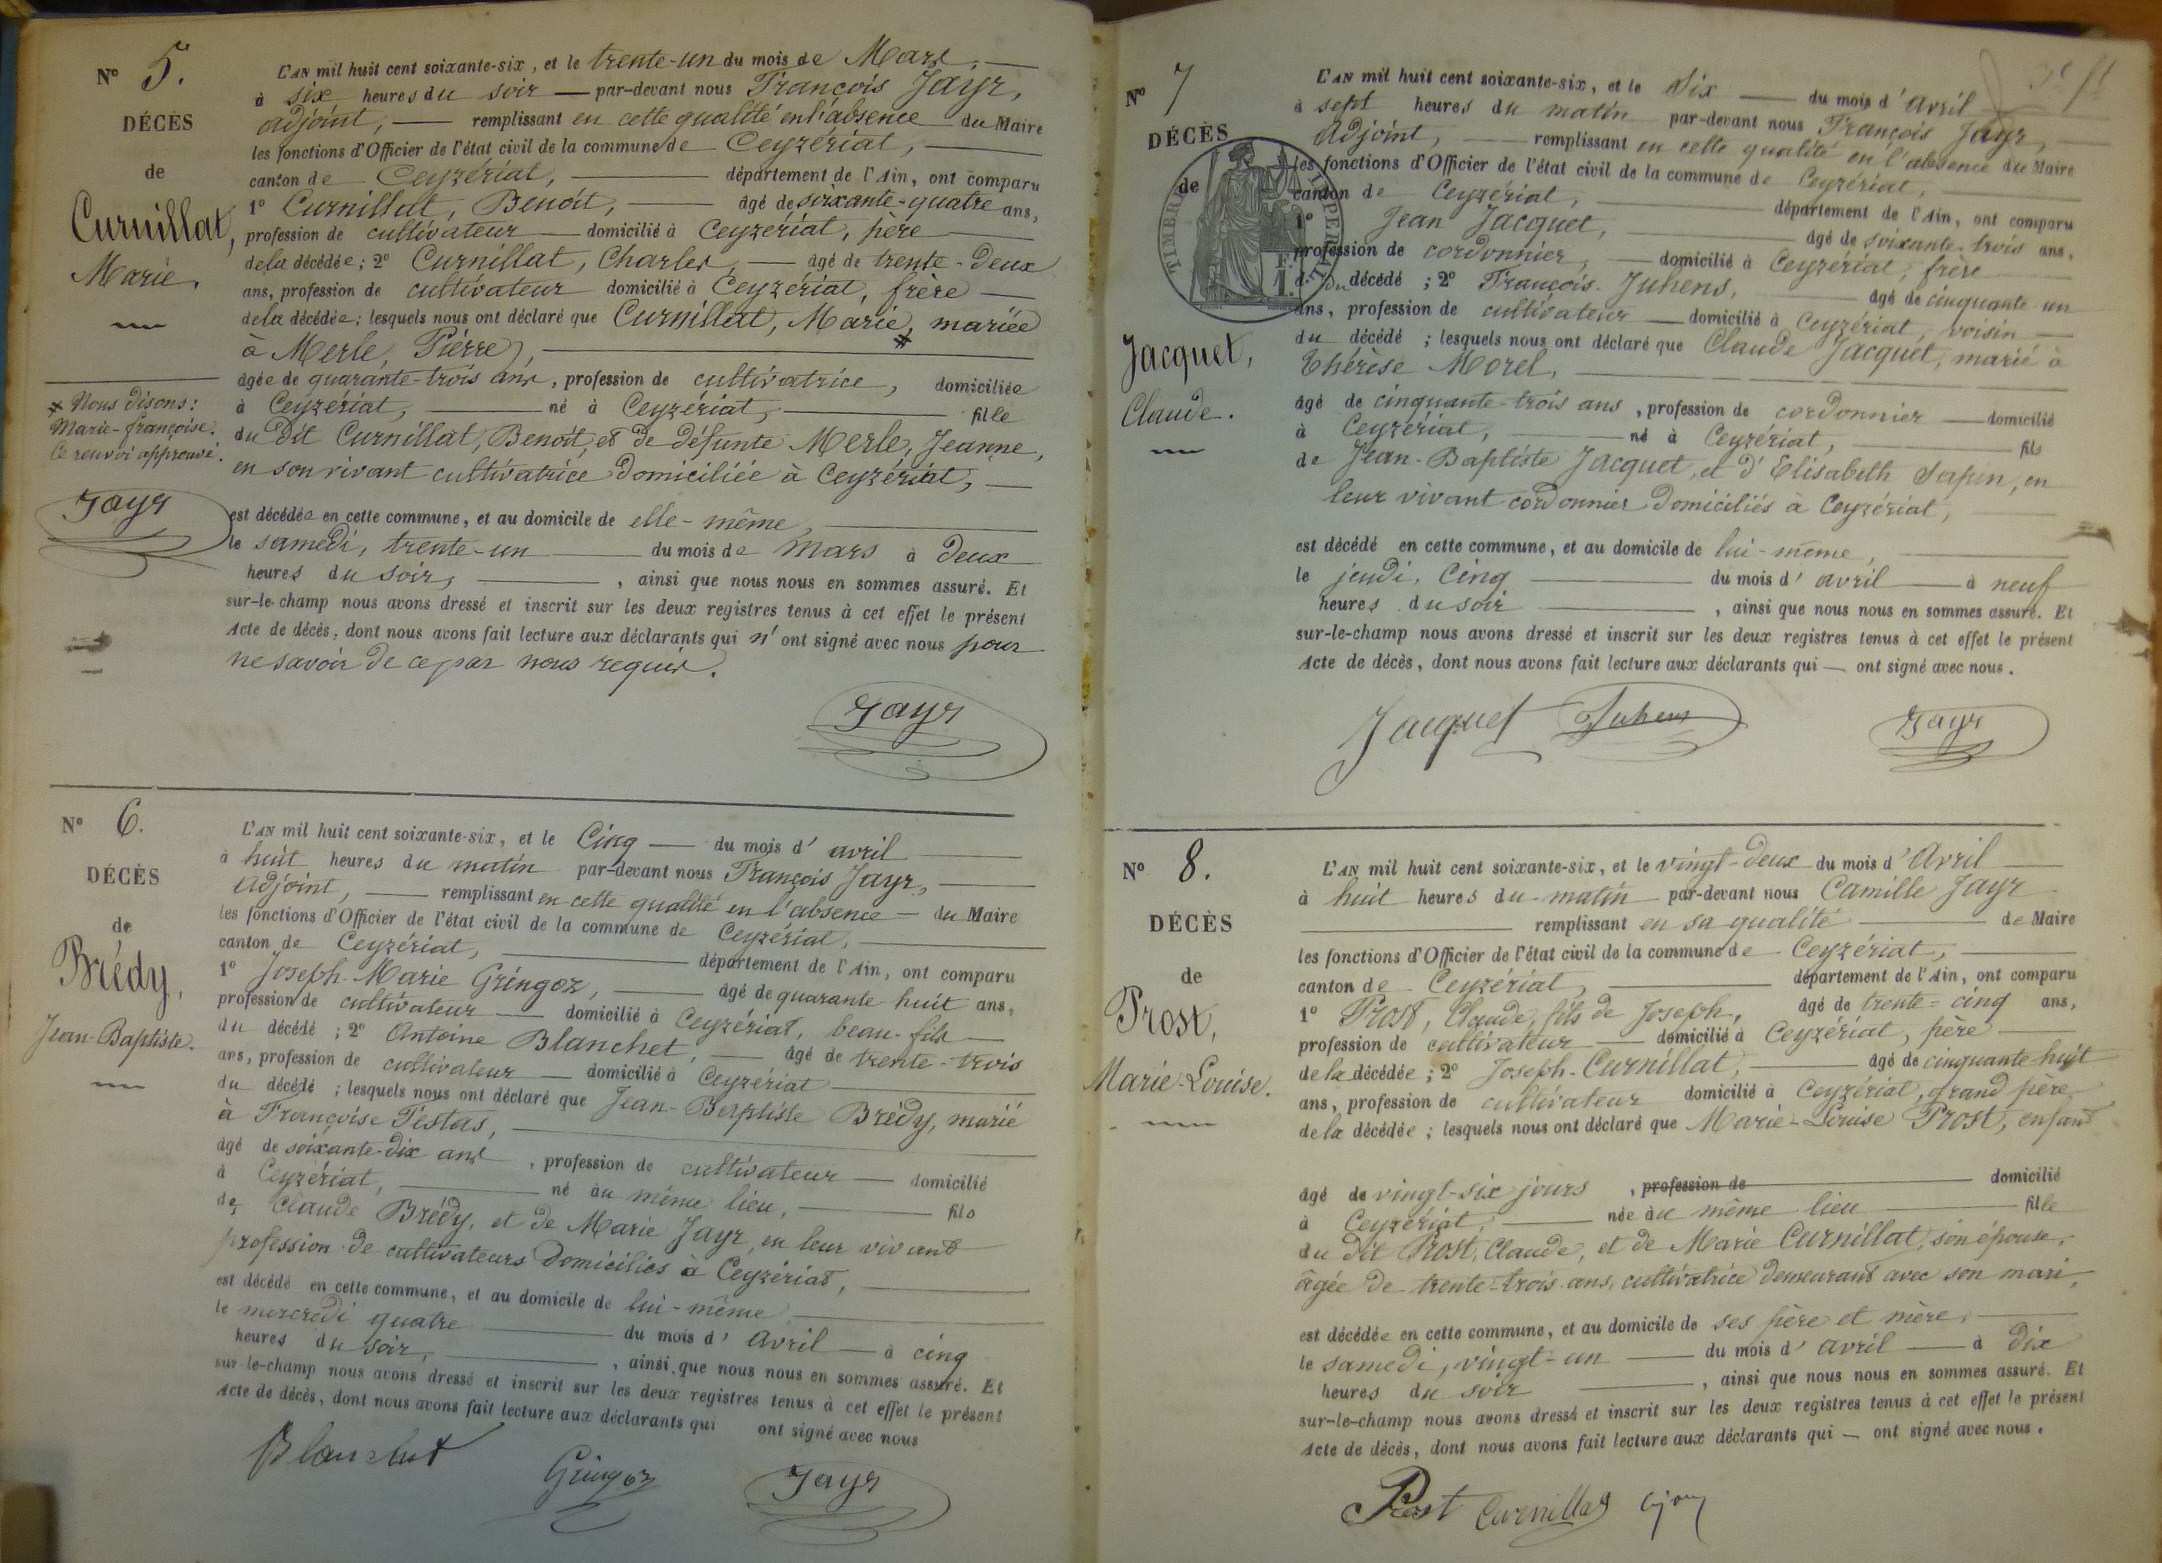 N° 5.
DÉCÈS
de
Curnillat,
Marie.
# Nous disons:
Marie-françoise.
Ce renvoi approuvé.
Jayr
L'AN mil huit cent soixante-six, et le trente-un du mois de Mars,
à six heures du soir par-devant nous François Jayr,
adjoint, remplissant en cette qualité en l'absence du Maire
les fonctions d'Officier de l'état civil de la commune de Ceyzériat,
canton de Ceyzériat, département de l'Ain, ont comparu
1° Curnillat, Benoît, âgé de soixante-quatre ans,
profession de cultivateur domicilié à Ceyzériat, père
de la décédée; 2° Curnillat, Charles, âgé de trente-deux
ans, profession de cultivateur domicilié à Ceyzériat, frère
de la décédée; lesquels nous ont déclaré que Curnillat, Marie, # mariée
à Merle, Pierre,
âgée de quarante-trois ans, profession de cultivatrice, domiciliée
à Ceyzériat, né à Ceyzériat, fille
du dit Curnillat, Benoît, et de défunte Merle, Jeanne,
en son vivant cultivatrice domiciliée à Ceyzériat,
est décédée en cette commune, et au domicile de elle-même,
le samedi, trente-un du mois de Mars à deux
heures du soir, , ainsi que nous nous en sommes assuré. Et
sur-le-champ nous avons dressé et inscrit sur les deux registres tenus à cet effet le présent
Acte de décès, dont nous avons fait lecture aux déclarants qui n'ont signé avec nous pour
ne savoir de ce par nous requis.
Jayr
N° 6.
DÉCÈS
de
Brédy,
Jean-Baptiste.
L'AN mil huit cent soixante-six, et le Cinq du mois d'avril
à huit heures du matin par-devant nous François Jayr,
Adjoint, remplissant en cette qualité en l'absence du Maire
les fonctions d'Officier de l'état civil de la commune de Ceyzériat,
canton de Ceyzériat, département de l'Ain, ont comparu
1° Joseph-Marie Gringoz, âgé de quarante-huit ans,
profession de cultivateur domicilié à Ceyzériat, beau-fils
du décédé; 2° Antoine Blanchet, âgé de trente-trois
ans, profession de cultivateur domicilié à Ceyzériat
du décédé; lesquels nous ont déclaré que Jean-Baptiste Brédy, marié
à Françoise Pistas,
âgé de soixante-dix ans, profession de cultivateur domicilié
à Ceyzériat, né au même lieu, fils
de Claude Brédy, et de Marie Jayr, en leur vivant
profession de cultivateurs domiciliés à Ceyzériat,
est décédé en cette commune, et au domicile de lui-même
le mercredi quatre du mois d'avril à cinq
heures du soir, , ainsi que nous nous en sommes assuré. Et
sur-le-champ nous avons dressé et inscrit sur les deux registres tenus à cet effet le présent
Acte de décès, dont nous avons fait lecture aux déclarants qui ont signé avec nous
Blanchet Gringoz Jayr
N° 7
DÉCÈS
de
Jacquet,
Claude.
TIMBRE IMPERIAL
L'AN mil huit cent soixante-six, et le Six du mois d'avril
à sept heures du matin par-devant nous François Jayr,
Adjoint, remplissant en cette qualité en l'absence du Maire
les fonctions d'Officier de l'état civil de la commune de Ceyzériat,
canton de Ceyzériat, département de l'Ain, ont comparu
1° Jean Jacquet, âgé de soixante-trois ans,
profession de cordonnier, domicilié à Ceyzériat, frère
du décédé; 2° François Juhens, âgé de cinquante-un
ans, profession de cultivateur domicilié à Ceyzériat, voisin
du décédé; lesquels nous ont déclaré que Claude Jacquet, marié à
Thérèse Morel,
âgé de cinquante-trois ans, profession de cordonnier domicilié
à Ceyzériat, né à Ceyzériat, fils
de Jean-Baptiste Jacquet, et d'Elisabeth Sapin, en
leur vivant cordonnier domiciliés à Ceyzériat,
est décédé en cette commune, et au domicile de lui-même,
le jeudi, Cinq du mois d'avril à neuf
heures du soir , ainsi que nous nous en sommes assuré. Et
sur-le-champ nous avons dressé et inscrit sur les deux registres tenus à cet effet le présent
Acte de décès, dont nous avons fait lecture aux déclarants qui — ont signé avec nous.
Jacquet Juhens Jayr
N° 8.
DÉCÈS
de
Prost,
Marie-Louise.
L'AN mil huit cent soixante-six, et le vingt-deux du mois d'Avril
à huit heures du matin par-devant nous Camille Jayr
remplissant en sa qualité de Maire
les fonctions d'Officier de l'état civil de la commune de Ceyzériat,
canton de Ceyzériat, département de l'Ain, ont comparu
1° Prost, Claude, fils de Joseph, âgé de trente-cinq ans,
profession de cultivateur domicilié à Ceyzériat, père
de la décédée; 2° Joseph-Curnillat, âgé de cinquante huit
ans, profession de cultivateur domicilié à Ceyzériat, grand père
de la décédée; lesquels nous ont déclaré que Marie-Louise Prost, enfant
âgé de vingt-six jours, profession de domicilié
à Ceyzériat, née au même lieu fille
du dit Prost, Claude, et de Marie Curnillat, son épouse,
âgée de trente-trois ans, cultivatrice demeurant avec son mari,
est décédée en cette commune, et au domicile de ses père et mère,
le samedi, vingt-un du mois d'avril à dix
heures du soir , ainsi que nous nous en sommes assuré. Et
sur-le-champ nous avons dressé et inscrit sur les deux registres tenus à cet effet le présent
Acte de décès, dont nous avons fait lecture aux déclarants qui — ont signé avec nous.
Prost Curnillat